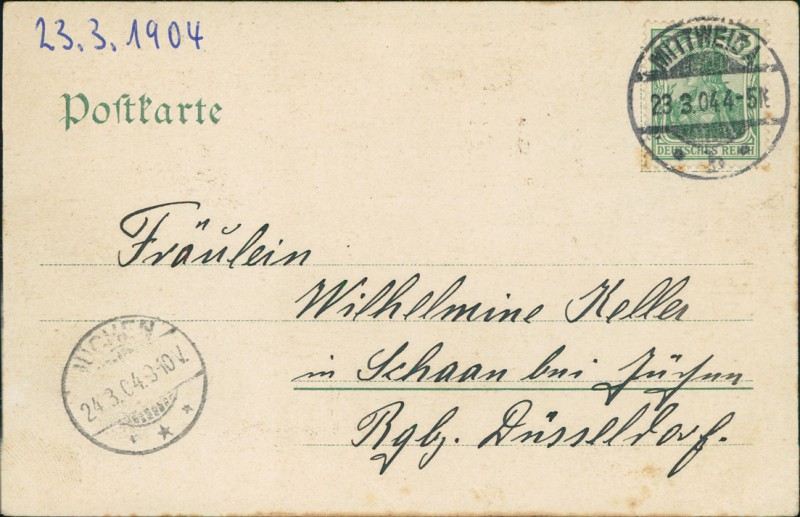 23.3.1904
Postkarte
MITTWEIDA
23.3.04.4-5N.
b
DEUTSCHES REICH
Fräulein
Wilhelmine Keller
in Schaan bei Jüchen
Rgbz. Düsseldorf.
24.3.04.9-10V.